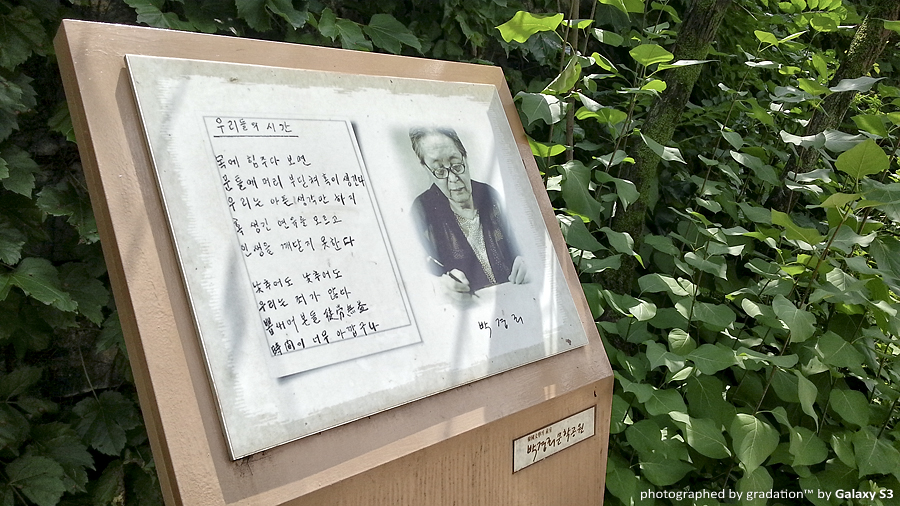 우리들의 시간
목에 힘주다 보면
문틀에 머리 부딪쳐 혹이 생긴다
우리는 아픈 생각만 하지
혹 생긴 연유를 모르고
인생을 깨닫지 못한다
낮추어도 낮추어도
우리는 죄가 많다
뽐내어 본들 徒勞無益
時間이 너무 아깝구나
박경리
박경리문학공원
photographed by gradation™ by Galaxy S3